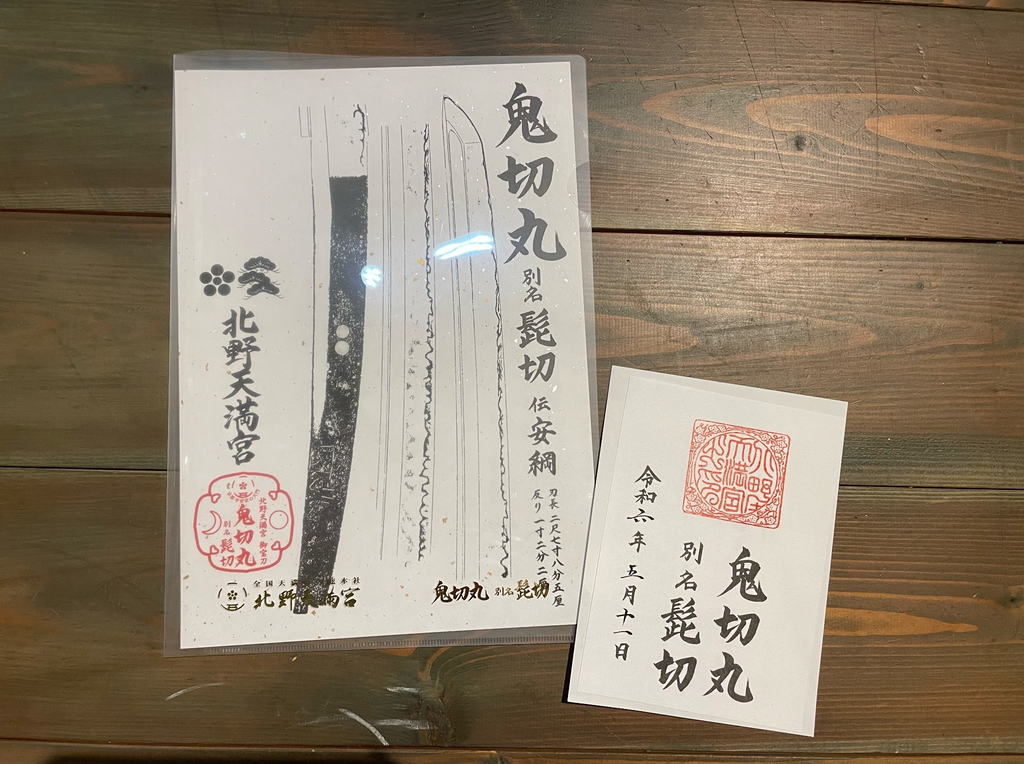 鬼切丸
別名
髭切
伝
安綱
刃長 二尺七寸八分五厘
反り 一寸二分二
北野天満宮
北野天満宮 御宝刀
鬼切丸
別名
髭切
全国天満
総本社
北野天満宮
鬼切丸 別名 髭切
鬼切丸
別名
髭切
令和六年 五月十一日